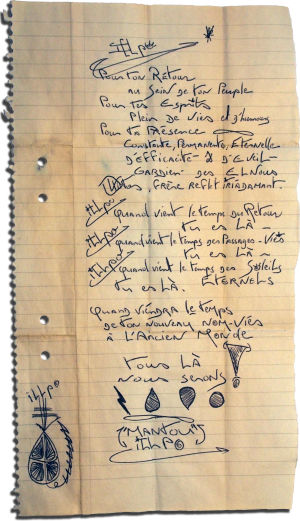 illpo
Pour ton Retour
au Sein de ton Peuple
Pour tes Esprits
Plein de Vies et d'humour
Pour ta Présence
Constante, Permanente, Eternelle
D'efficacité & d'Eveil
Gardien des
frère
illpo quand vient le temps du Retour
tu es Là ~
illpo quand vient le temps des Passages-Vies
tu es Là ~
illpo quand vient le temps des Soleils
tu es Là. Eternels
Quand viendra le temps
de ton nouveau nom-vies
à l'Ancien Monde
tous Là
nous serons !
"Manitou"
illpo
illpo